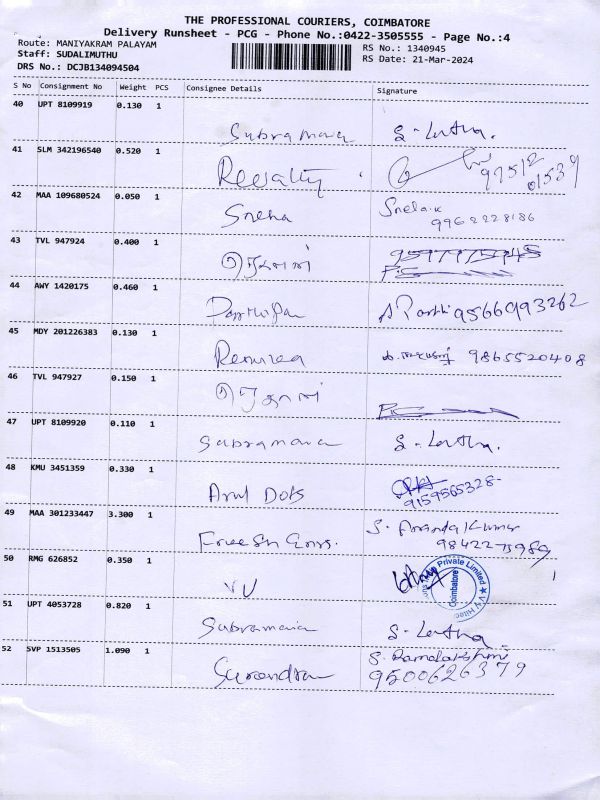 THE PROFESSIONAL COURIERS, COIMBATORE
Delivery Runsheet - PCG - Phone No.:0422-3505555 - Page No.:4
Route: MANIYAKRAM PALAYAM
RS No.: 1340945
Staff: SUDALIMUTHU
RS Date: 21-Mar-2024
DRS No.: DCJB134094504
S No Consignment No Weight PCS Consignee Details Signature
40 UPT 8109919 0.130 1
S. Latha.
41 SLM 342196540 0.520 1
42 MAA 109680524 0.050 1
Sneha Snela.k
9962228186
43 TVL 947924 0.400 1
44 AWY 1420175 0.460 1
9566993262
45 MDY 201226383 0.130 1
9865520408
46 TVL 947927 0.150 1
47 UPT 8109920 0.110 1
S. Latha.
48 KMU 3451359 0.330 1
Arul Dots
9159565328
49 MAA 301233447 3.300 1
S. Ananda Kumar
9842275989
50 RMG 626852 0.350 1
VU
Private Limited
Coimbatore
51 UPT 4053728 0.820 1
S. Latha
52 SVP 1513505 1.090 1
S. Ramalakshmi
Surendran 9500626379